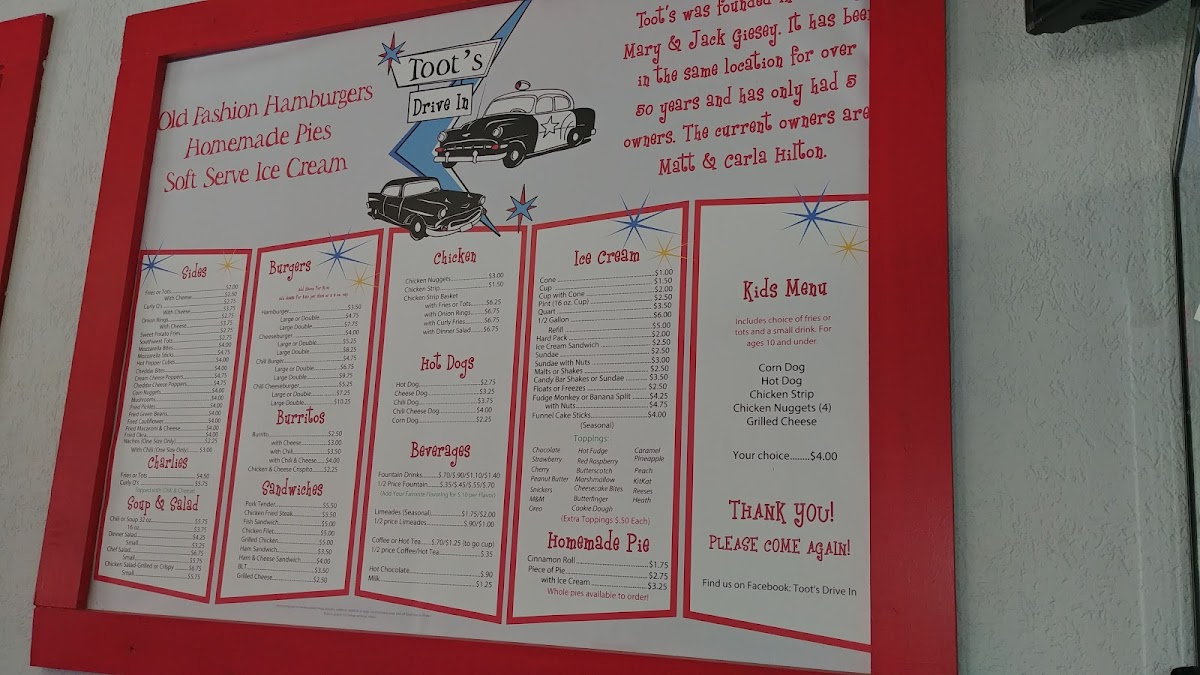 Old Fashion Hamburgers
Homemade Pies
Soft Serve Ice Cream
Toot's
Drive In
Toot's was founded
Mary & Jack Giesey. It has been
in the same location for over
50 years and has only had 5
owners. The current owners are
Matt & Carla Hilton.
Sides
Fries or Tots $2.00
With Cheese $2.50
Curly Q's $2.75
With Cheese $3.75
Onion Rings $2.75
With Cheese $3.75
Sweet Potato Fries $2.75
Southwest Tots $2.75
Mozzarella Bites $4.00
Mozzarella Sticks $4.75
Hot Pepper Cubes $4.00
Cheddar Bites $4.00
Cream Cheese Poppers $4.75
Cheddar Cheese Poppers $4.75
Corn Nuggets $4.00
Mushrooms $4.00
Fried Pickles $4.00
Fried Green Beans $4.00
Fried Cauliflower $4.00
Fried Macaroni & Cheese $4.00
Fried Okra $4.00
Nachos (One Size Only) $2.25
With Chili (One Size Only) $3.00
Charlies
Fries or Tots $4.50
Curly Q's $5.75
Topped with Chili & Cheese
Soup & Salad
Chili or Soup 32 oz. $5.75
16 oz. $3.75
Dinner Salad $4.25
Small $3.25
Chef Salad $6.75
Small $5.75
Chicken Salad-Grilled or Crispy $6.75
Small $5.75
Burgers
Hamburger $3.50
Large or Double $4.75
Large Double $7.75
Cheeseburger $4.00
Large or Double $5.25
Large Double $8.25
Chili Burger $4.75
Large or Double $6.75
Large Double $9.75
Chili Cheeseburger $5.25
Large or Double $7.25
Large Double $10.25
Burritos
Burrito $2.50
with Cheese $3.00
with Chili $3.50
with Chili & Cheese $4.00
Chicken & Cheese Crispito $2.25
Sandwiches
Pork Tender $5.50
Chicken Fried Steak $5.50
Fish Sandwich $5.00
Chicken Filet $5.00
Grilled Chicken $5.00
Ham Sandwich $3.50
Ham & Cheese Sandwich $4.00
BLT $3.50
Grilled Cheese $2.50
Chicken
Chicken Nuggets $3.00
Chicken Strip $1.50
Chicken Strip Basket
with Fries or Tots $6.25
with Onion Rings $6.75
with Curly Fries $6.75
with Dinner Salad $6.75
Hot Dogs
Hot Dog $2.75
Cheese Dog $3.25
Chili Dog $3.75
Chili Cheese Dog $4.00
Corn Dog $2.25
Beverages
Fountain Drinks $.70/$.90/$1.10/$1.40
1/2 Price Fountain $.35/$.45/$.55/$.70
(Add Your Favorite Flavoring for $.10 per Flavor)
Limeades (Seasonal) $1.75/$2.00
1/2 price Limeades $.90/$1.00
Coffee or Hot Tea $.70/$1.25 (to go cup)
1/2 price Coffee/Hot Tea $.35
Hot Chocolate $.90
Milk $1.25
Ice Cream
Cone $1.00
Cup $1.50
Cup with Cone $2.00
Pint (16 oz. Cup) $2.50
Quart $3.50
1/2 Gallon $6.00
Refill $5.00
Hard Pack $2.00
Ice Cream Sandwich $2.50
Sundae $2.50
Sundae with Nuts $3.00
Malts or Shakes $2.50
Candy Bar Shakes or Sundae $3.50
Floats or Freezes $2.50
Fudge Monkey or Banana Split $4.25
with Nuts $4.75
Funnel Cake Sticks $4.00
(Seasonal)
Toppings:
Chocolate Hot Fudge Caramel
Strawberry Red Raspberry Pineapple
Cherry Butterscotch Peach
Peanut Butter Marshmallow KitKat
Snickers Cheesecake Bites Reeses
M&M Butterfinger Heath
Oreo Cookie Dough
(Extra Toppings $.50 Each)
Homemade Pie
Cinnamon Roll $1.75
Piece of Pie $2.75
with Ice Cream $3.25
Whole pies available to order!
Kids Menu
Includes choice of fries or
tots and a small drink. For
ages 10 and under.
Corn Dog
Hot Dog
Chicken Strip
Chicken Nuggets (4)
Grilled Cheese
Your choice........$4.00
THANK YOU!
PLEASE COME AGAIN!
Find us on Facebook: Toot's Drive In